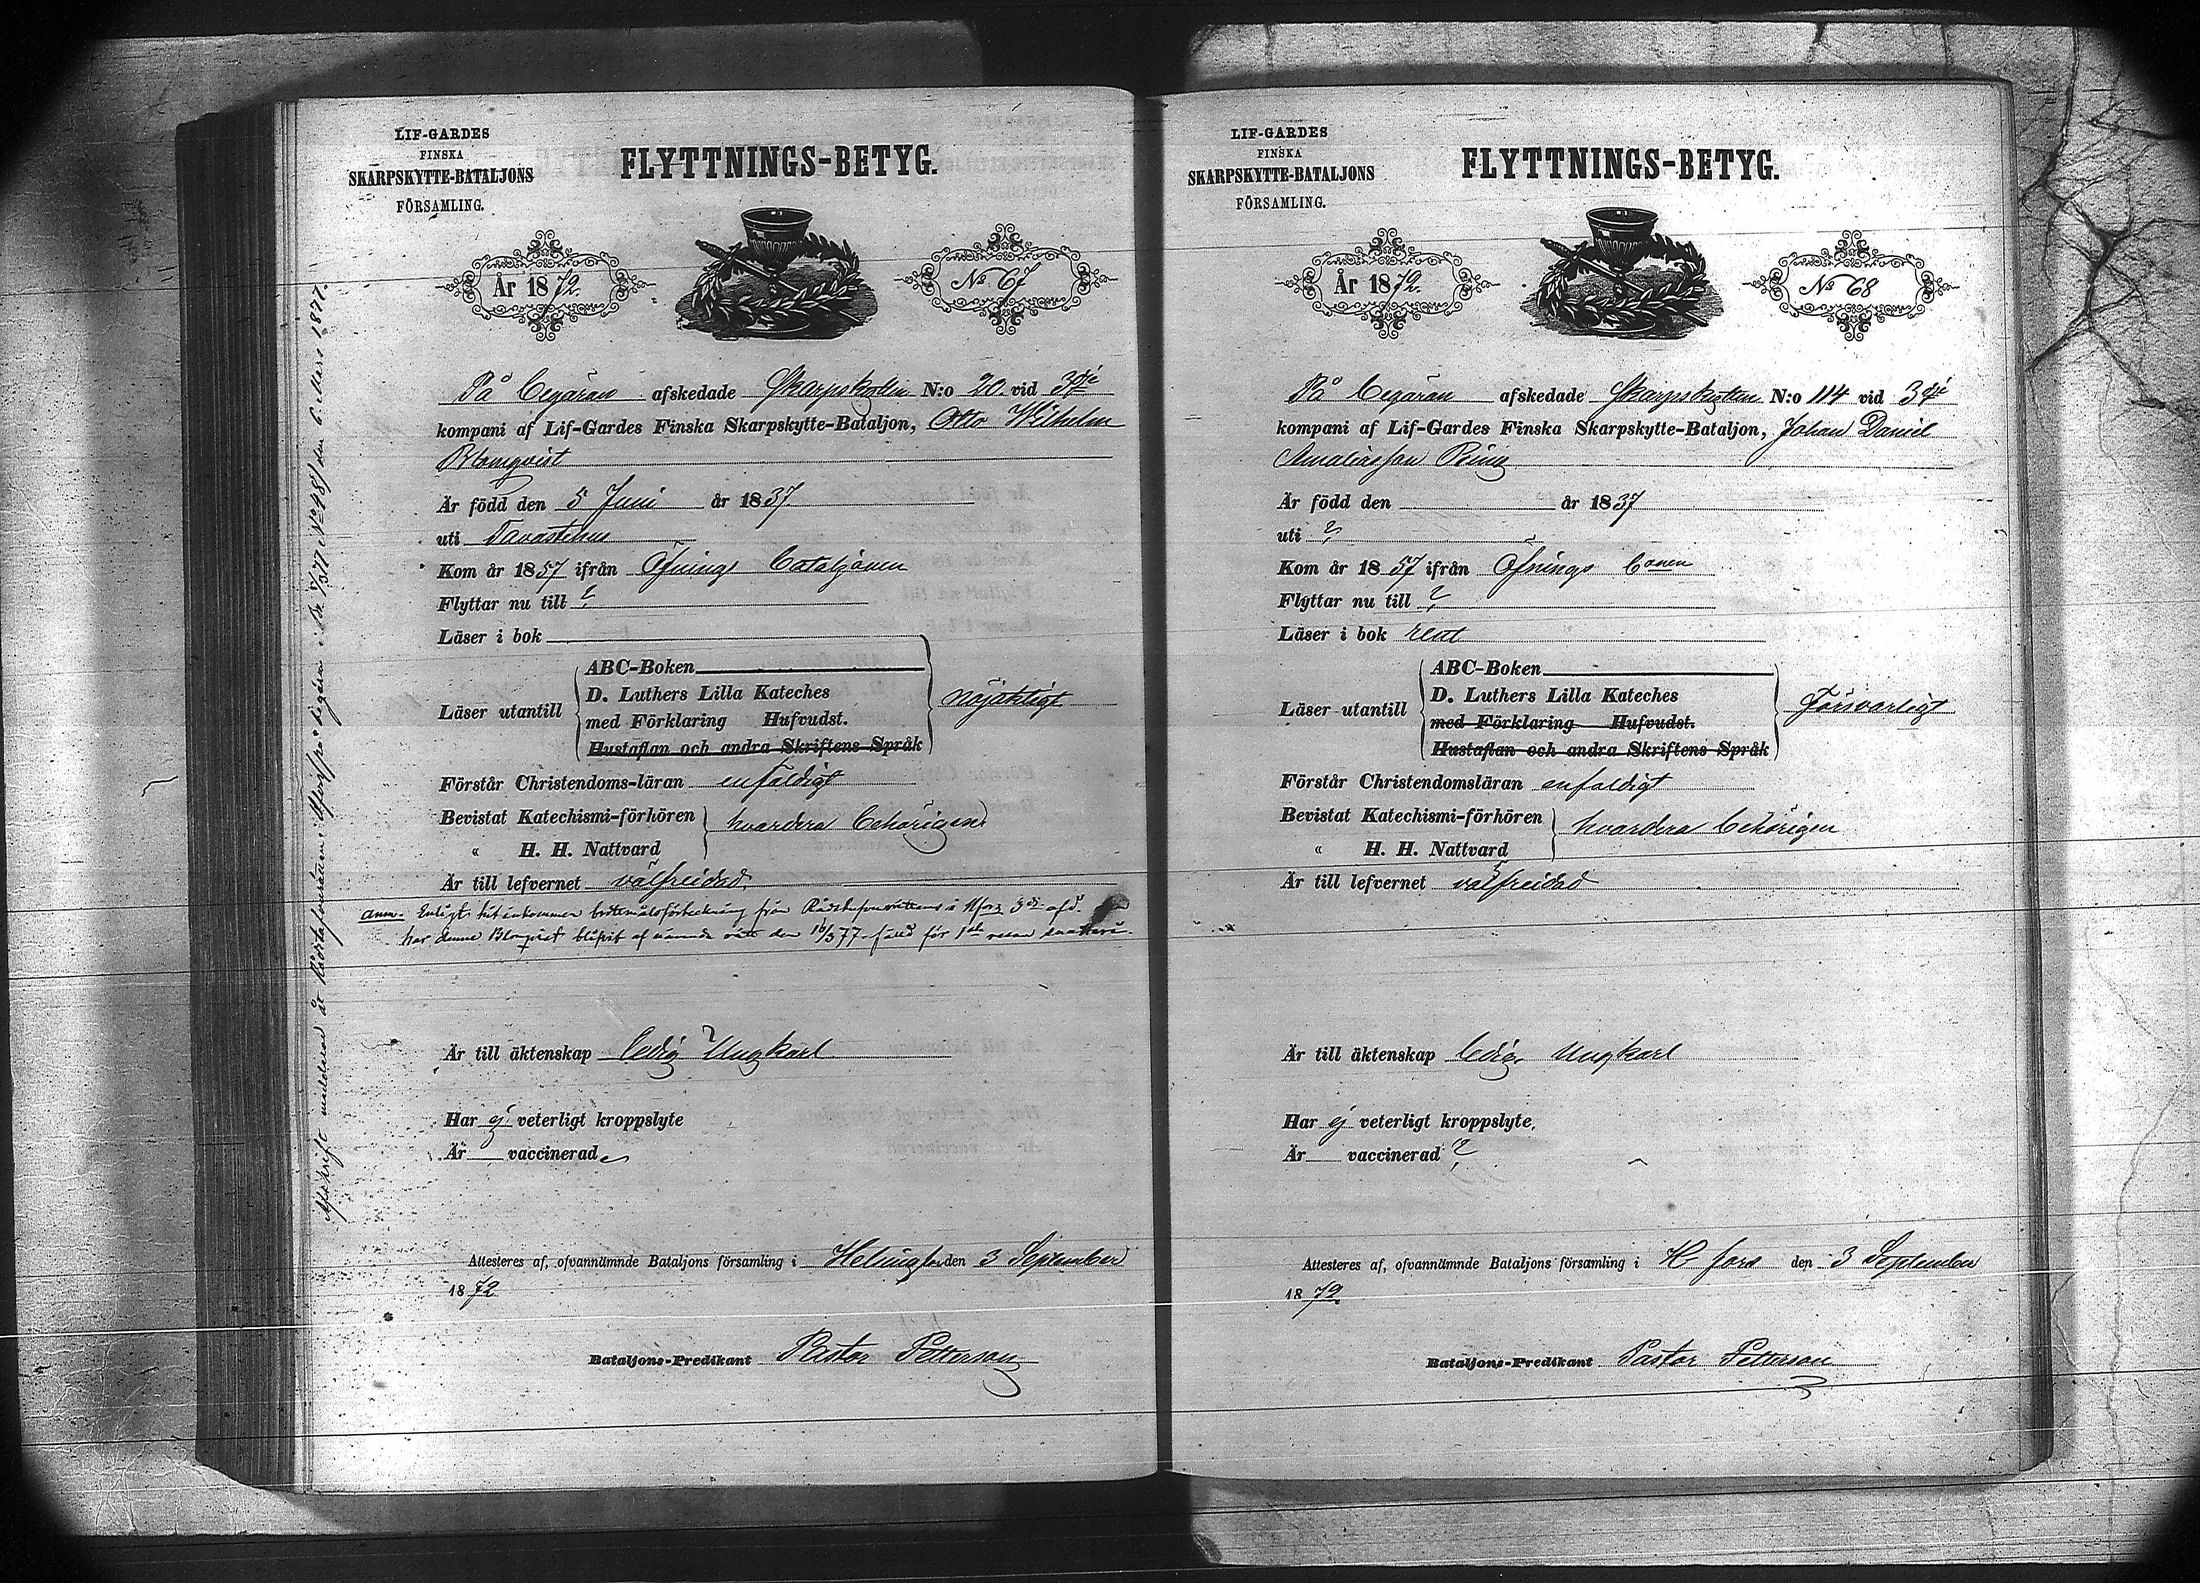 LIF-GARDES
FINSKA
SKARPSKYTTE-BATALJONS
FÖRSAMLING.
FLYTTNINGS-BETYG.
År 1872.
No 67
På begäran afskedade Skarpskytten N:o 20. vid 3dje
kompani af Lif-Gardes Finska Skarpskytte-Bataljon, Otto Wilhelm
Blomqvist
Är född den 5 Juni år 1837.
uti Tavastehus
Kom år 1857 ifrån Öfnings bataljonen
Flyttar nu till ?
Läser i bok
Läser utantill
ABC-Boken
D. Luthers Lilla Kateches
med Förklaring Hufvudst.
Hustaflan och andra Skriftens Språk
nöjaktigt
Förstår Christendoms-läran enfaldigt
Bevistat Katechismi-förhören
« H. H. Nattvard
hvardera behörigen
Är till lefvernet välfreidad.
Anm. Enligt hit inkommen förteckning från Rådstufvurättens i Hfors 3dje afd.
har denne Blomqvist blifvit af nämnde rätt den 16/3 77 fälld för 1sta resan snatteri.
Är till äktenskap ledig Ungkarl
Har ej veterligt kroppslyte
Är vaccinerad
Attesteres af, ofvannämnde Bataljons församling i Helsingfors den 3 September
1872
Bataljons-Predikant Pastor Petterson
Afskrift meddelad åt Rådstufvurätten i Hfors, på begäran i No 48 den 6 Mars 1877.
LIF-GARDES
FINSKA
SKARPSKYTTE-BATALJONS
FÖRSAMLING.
FLYTTNINGS-BETYG.
År 1872.
No 68
På begäran afskedade Skarpskytten N:o 114 vid 3dje
kompani af Lif-Gardes Finska Skarpskytte-Bataljon, Johan Daniel
Amaliasson Ring
Är född den år 1837
uti ?
Kom år 1857 ifrån Öfnings bonen
Flyttar nu till ?
Läser i bok rent
Läser utantill
ABC-Boken
D. Luthers Lilla Kateches
med Förklaring Hufvudst.
Hustaflan och andra Skriftens Språk
Försvarligt
Förstår Christendomsläran enfaldigt
Bevistat Katechismi-förhören
« H. H. Nattvard
hvardera behörigen
Är till lefvernet välfreidad
Är till äktenskap ledig Ungkarl
Har ej veterligt kroppslyte.
Är vaccinerad ?
Attesteres af, ofvannämnde Bataljons församling i H fors den 3 September
1872.
Bataljons-Predikant Pastor Petterson